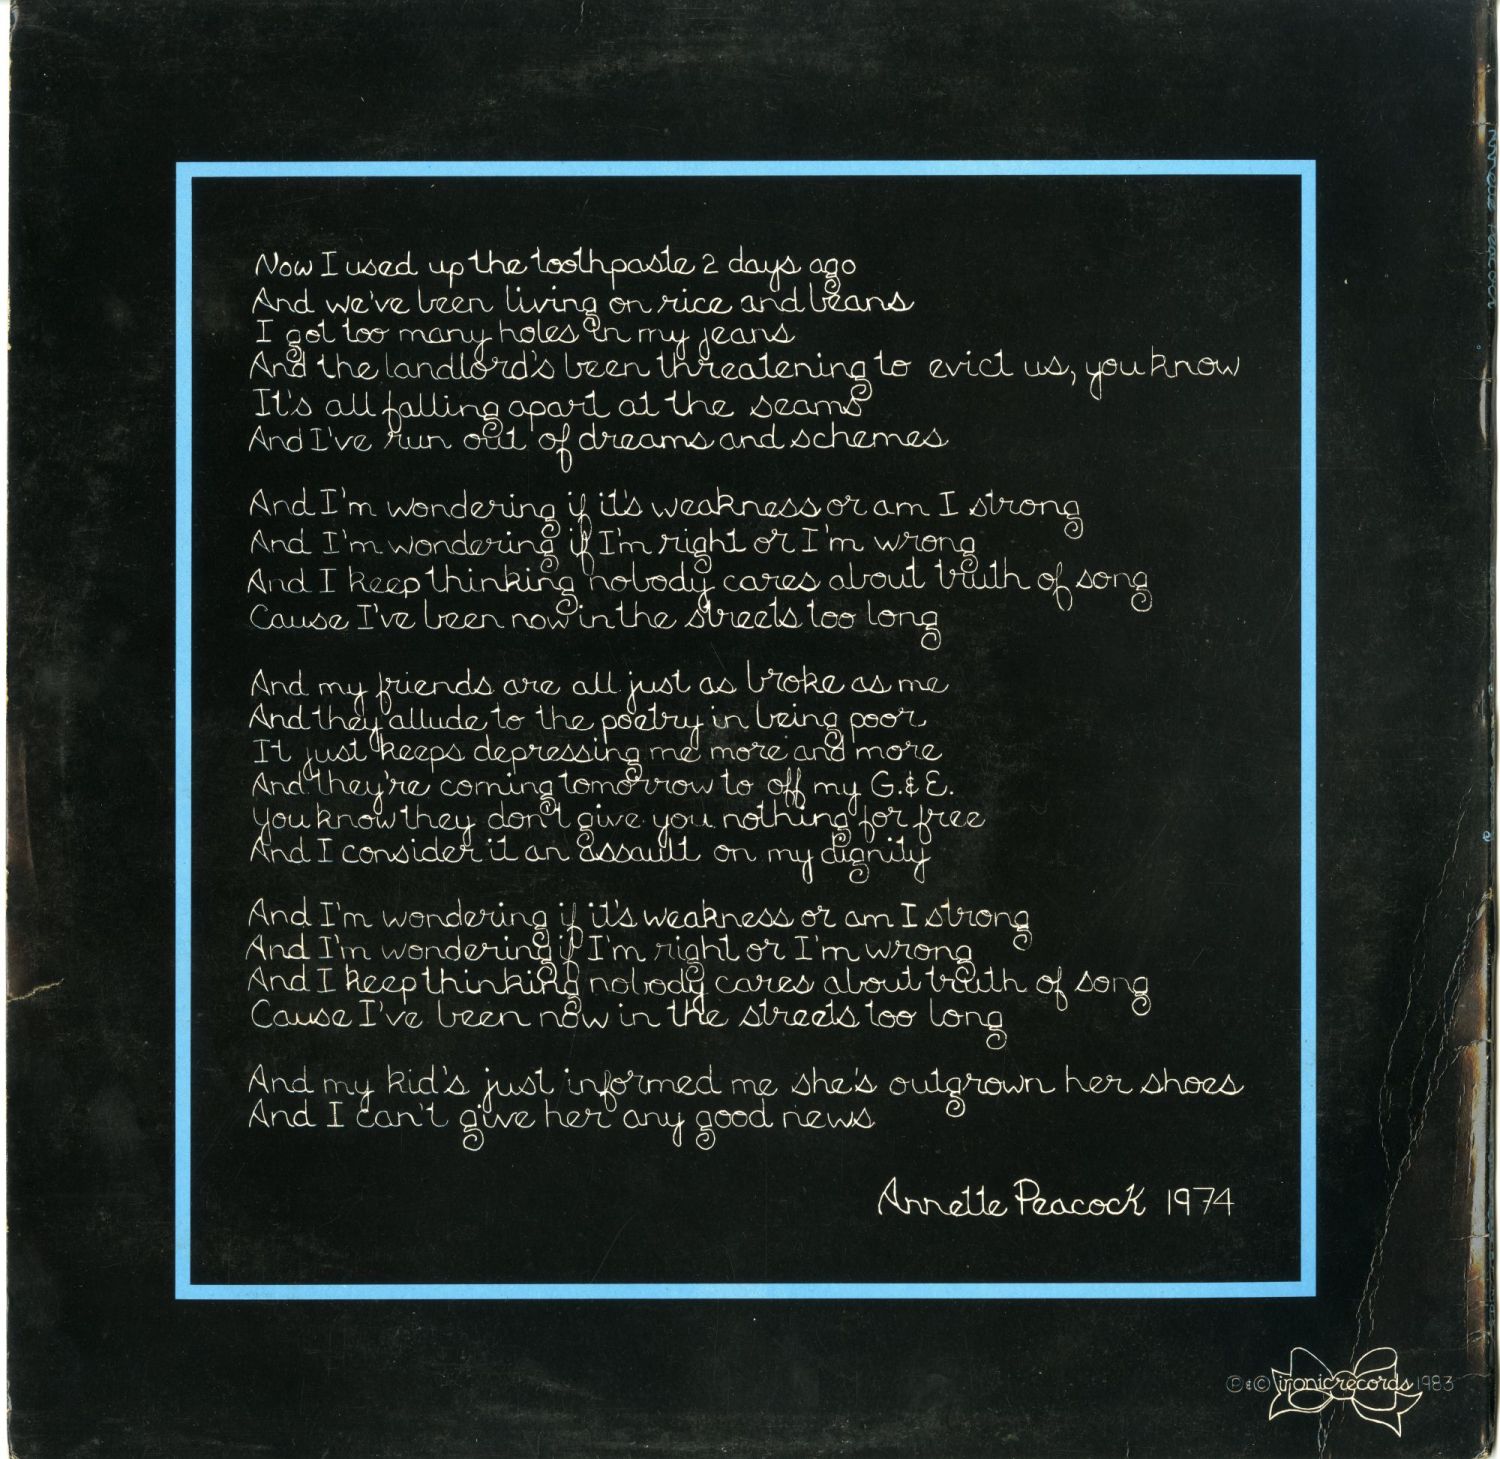 Now I used up the toothpaste 2 days ago
And we've been living on rice and beans
I got too many holes in my jeans
And the landlord's been threatening to evict us, you know
It's all falling apart at the seams
And I've run out of dreams and schemes
And I'm wondering if it's weakness or am I strong
And I'm wondering if I'm right or I'm wrong
And I keep thinking nobody cares about truth of song
Cause I've been now in the streets too long
And my friends are all just as broke as me
And they allude to the poetry in being poor
It just keeps depressing me more and more
And they're coming tomorrow to off my G.& E.
You know they don't give you nothing for free
And I consider it an assault on my dignity
And I'm wondering if it's weakness or am I strong
And I'm wondering if I'm right or I'm wrong
And I keep thinking nobody cares about truth of song
Cause I've been now in the streets too long
And my kid's just informed me she's outgrown her shoes
And I can't give her any good news
Annette Peacock 1974
℗&© ironic records 1983
Annette Peacock